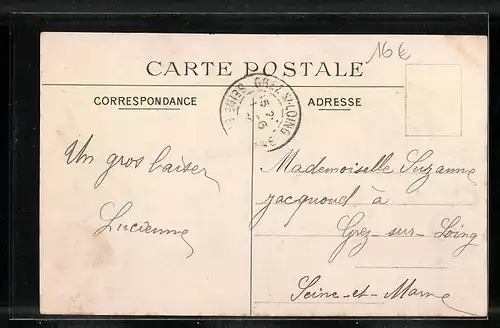 16€
CARTE POSTALE
CORRESPONDANCE
ADRESSE
GREZ-S-LOING
SEINE-ET-M
Un gros baiser
Lucienne
Mademoiselle Suzanne
Jacquoud à
Grez-sur-Loing
Seine-et-Marne